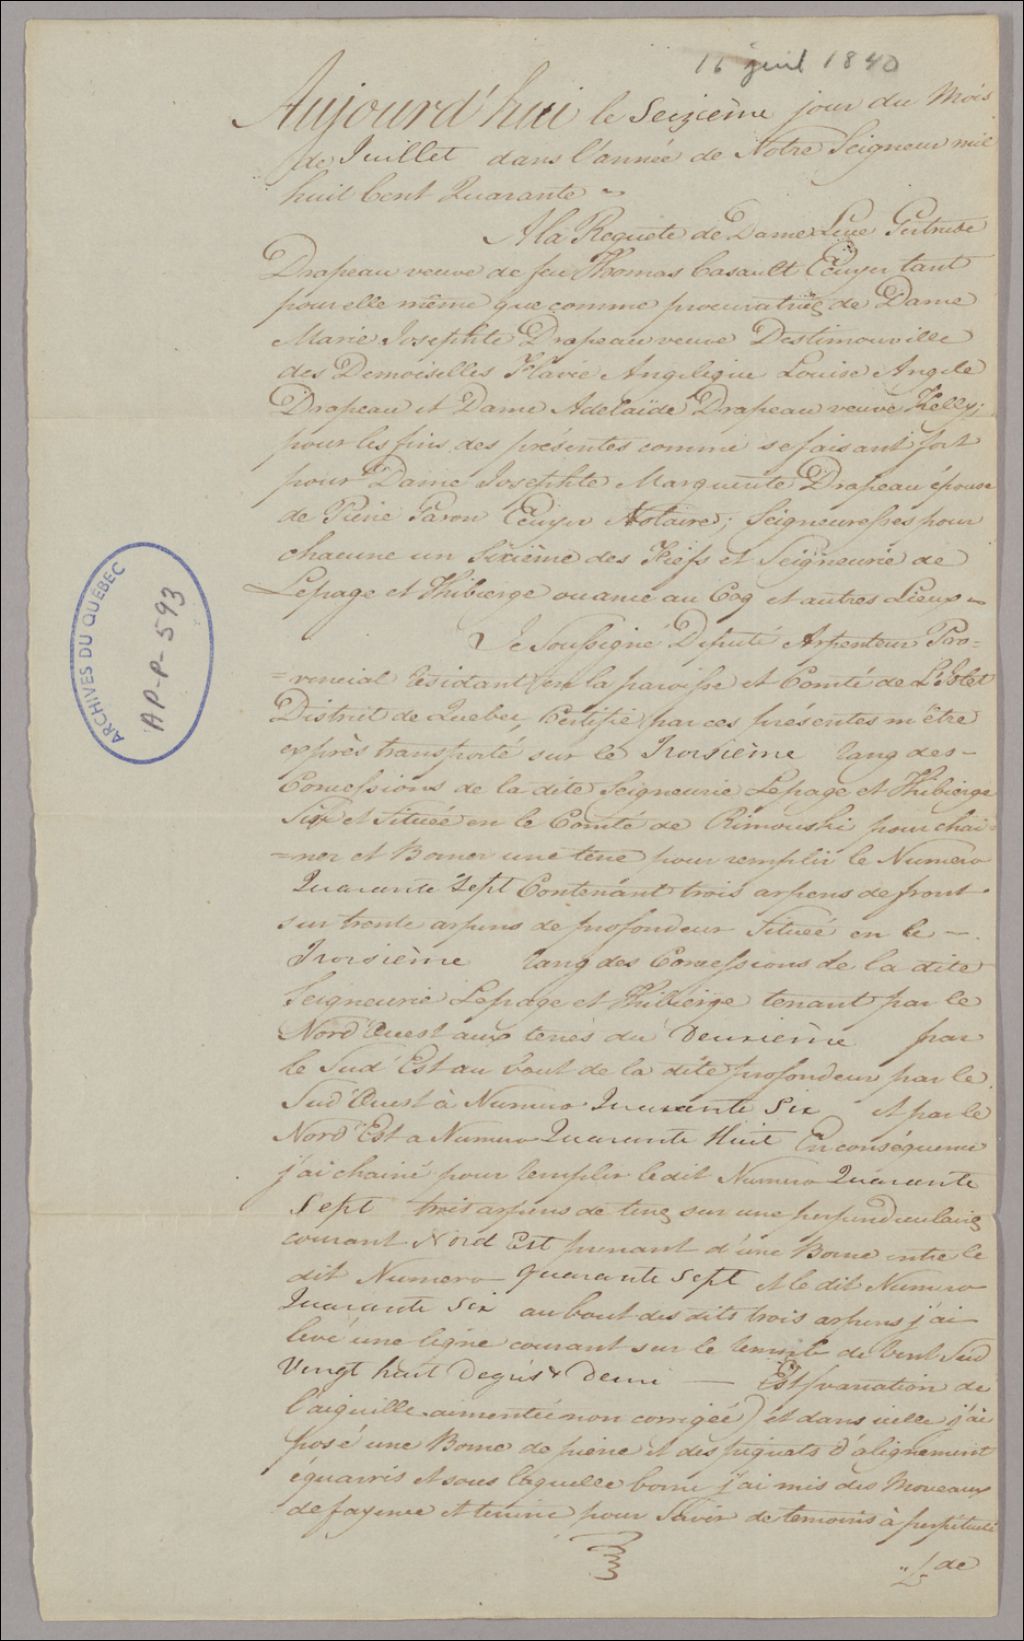 16 juil 1840
Aujourd'hui le Seizième jour du Mois
de Juillet dans l'année de Notre Seigneur mil
huit Cent Quarante ~
A la Requete de Dame Luce Gertrude
Drapeau veuve de feu Thomas Casault Ecuyer tant
pour elle même que comme procuratrice de Dame
Marie Josephte Drapeau veuve Destimouville
des Demoiselles Flavie Angelique Louise Angele
Drapeau et Dame Adelaïde Drapeau veuve Kelly;
pour les fins des présentes comme se faisant fort
pour Dame Josephte Marguerite Drapeau épouse
de Pierre Garon Ecuyer Notaire; Seigneuresses pour
chacune un Sixième des Fiefs et Seigneurie de
Lepage et Thibierge ou ance au Coq et autres Lieux ~
Je Soussigné Deputé Arpenteur Pro=
=vincial résidant en la paroisse et Comté de L'Islet
District de Quebec, Certifie par ces présentes m'être
exprès transporté sur le Troisième rang des -
Concessions de la dite Seigneurie Lepage et Thibierge
Sise et Située en le Comté de Rimouski pour chai=
=ner et Borner une terre pour remplir le Numero
Quarante Sept Contenant trois arpens de front
sur trente arpens de profondeur Située en le -
Troisième rang des Concessions de la dite
Seigneurie Lepage et Thibierge tenant par le
Nord Ouest aux terres du Deuxième par
le Sud Est au bout de la dite profondeur par le
Sud Ouest à Numero Quarante Six et par le
Nord Est a Numero Quarante Huit En conséquence
j'ai chainé pour remplir le dit Numero Quarante
Sept trois arpens de terre sur une perpendiculaire
courant Nord Est prenant d'une Borne entre le
dit Numero Quarante Sept et le dit Numero
Quarante Six au bout des dits trois arpens j'ai
levé une ligne courant sur le de vent Sud
Vingt huit Degrés & Demi — Est (variation de
l'aiguille aimentée non corrigée) et dans icelle j'ai
posé une Borne de pierre et des piquets d'alignement
équarris et sous laquelle borne j'ai mis des Morceaux
de fayence et terrine pour Servir de temoins à perpétuité
de
ARCHIVES DU QUÉBEC
AP-P-593